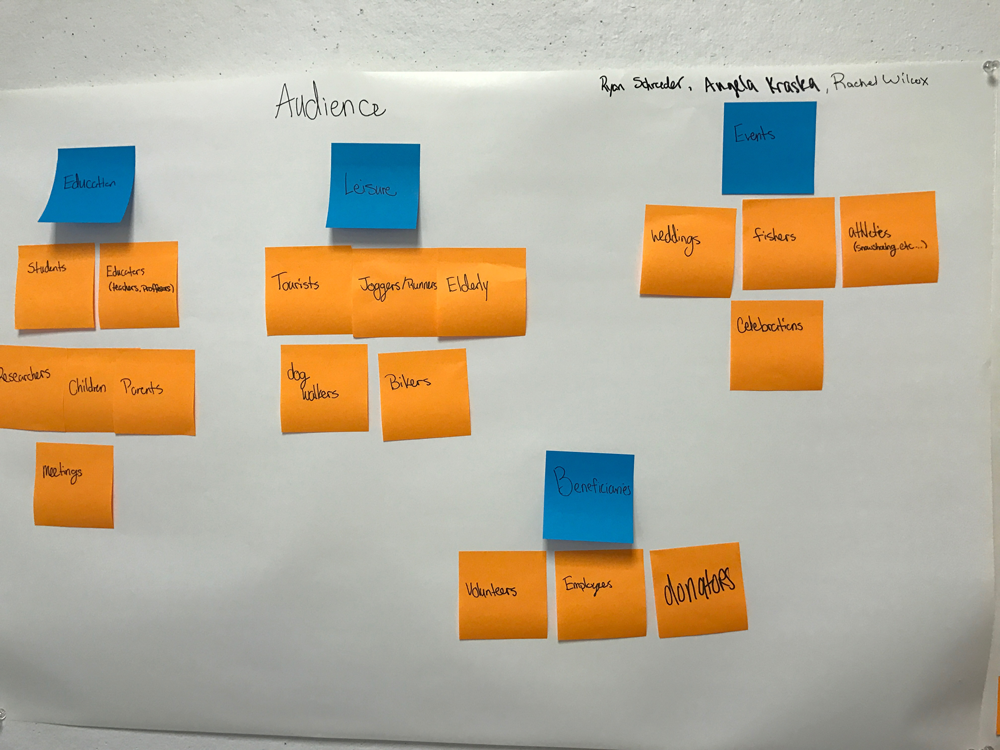 Audience
Ryan Schroeder, Angela Kraska, Rachel Wilcox
Education
Students
Educators
(teachers, Proffesors)
Researchers
Children
Parents
Meetings
Leisure
Tourists
Joggers/Runners
Elderly
dog
walkers
Bikers
Events
Weddings
fishers
athletes
(snowshoeing..etc...)
Celebrations
Beneficiaries
Volunteers
Employees
donators